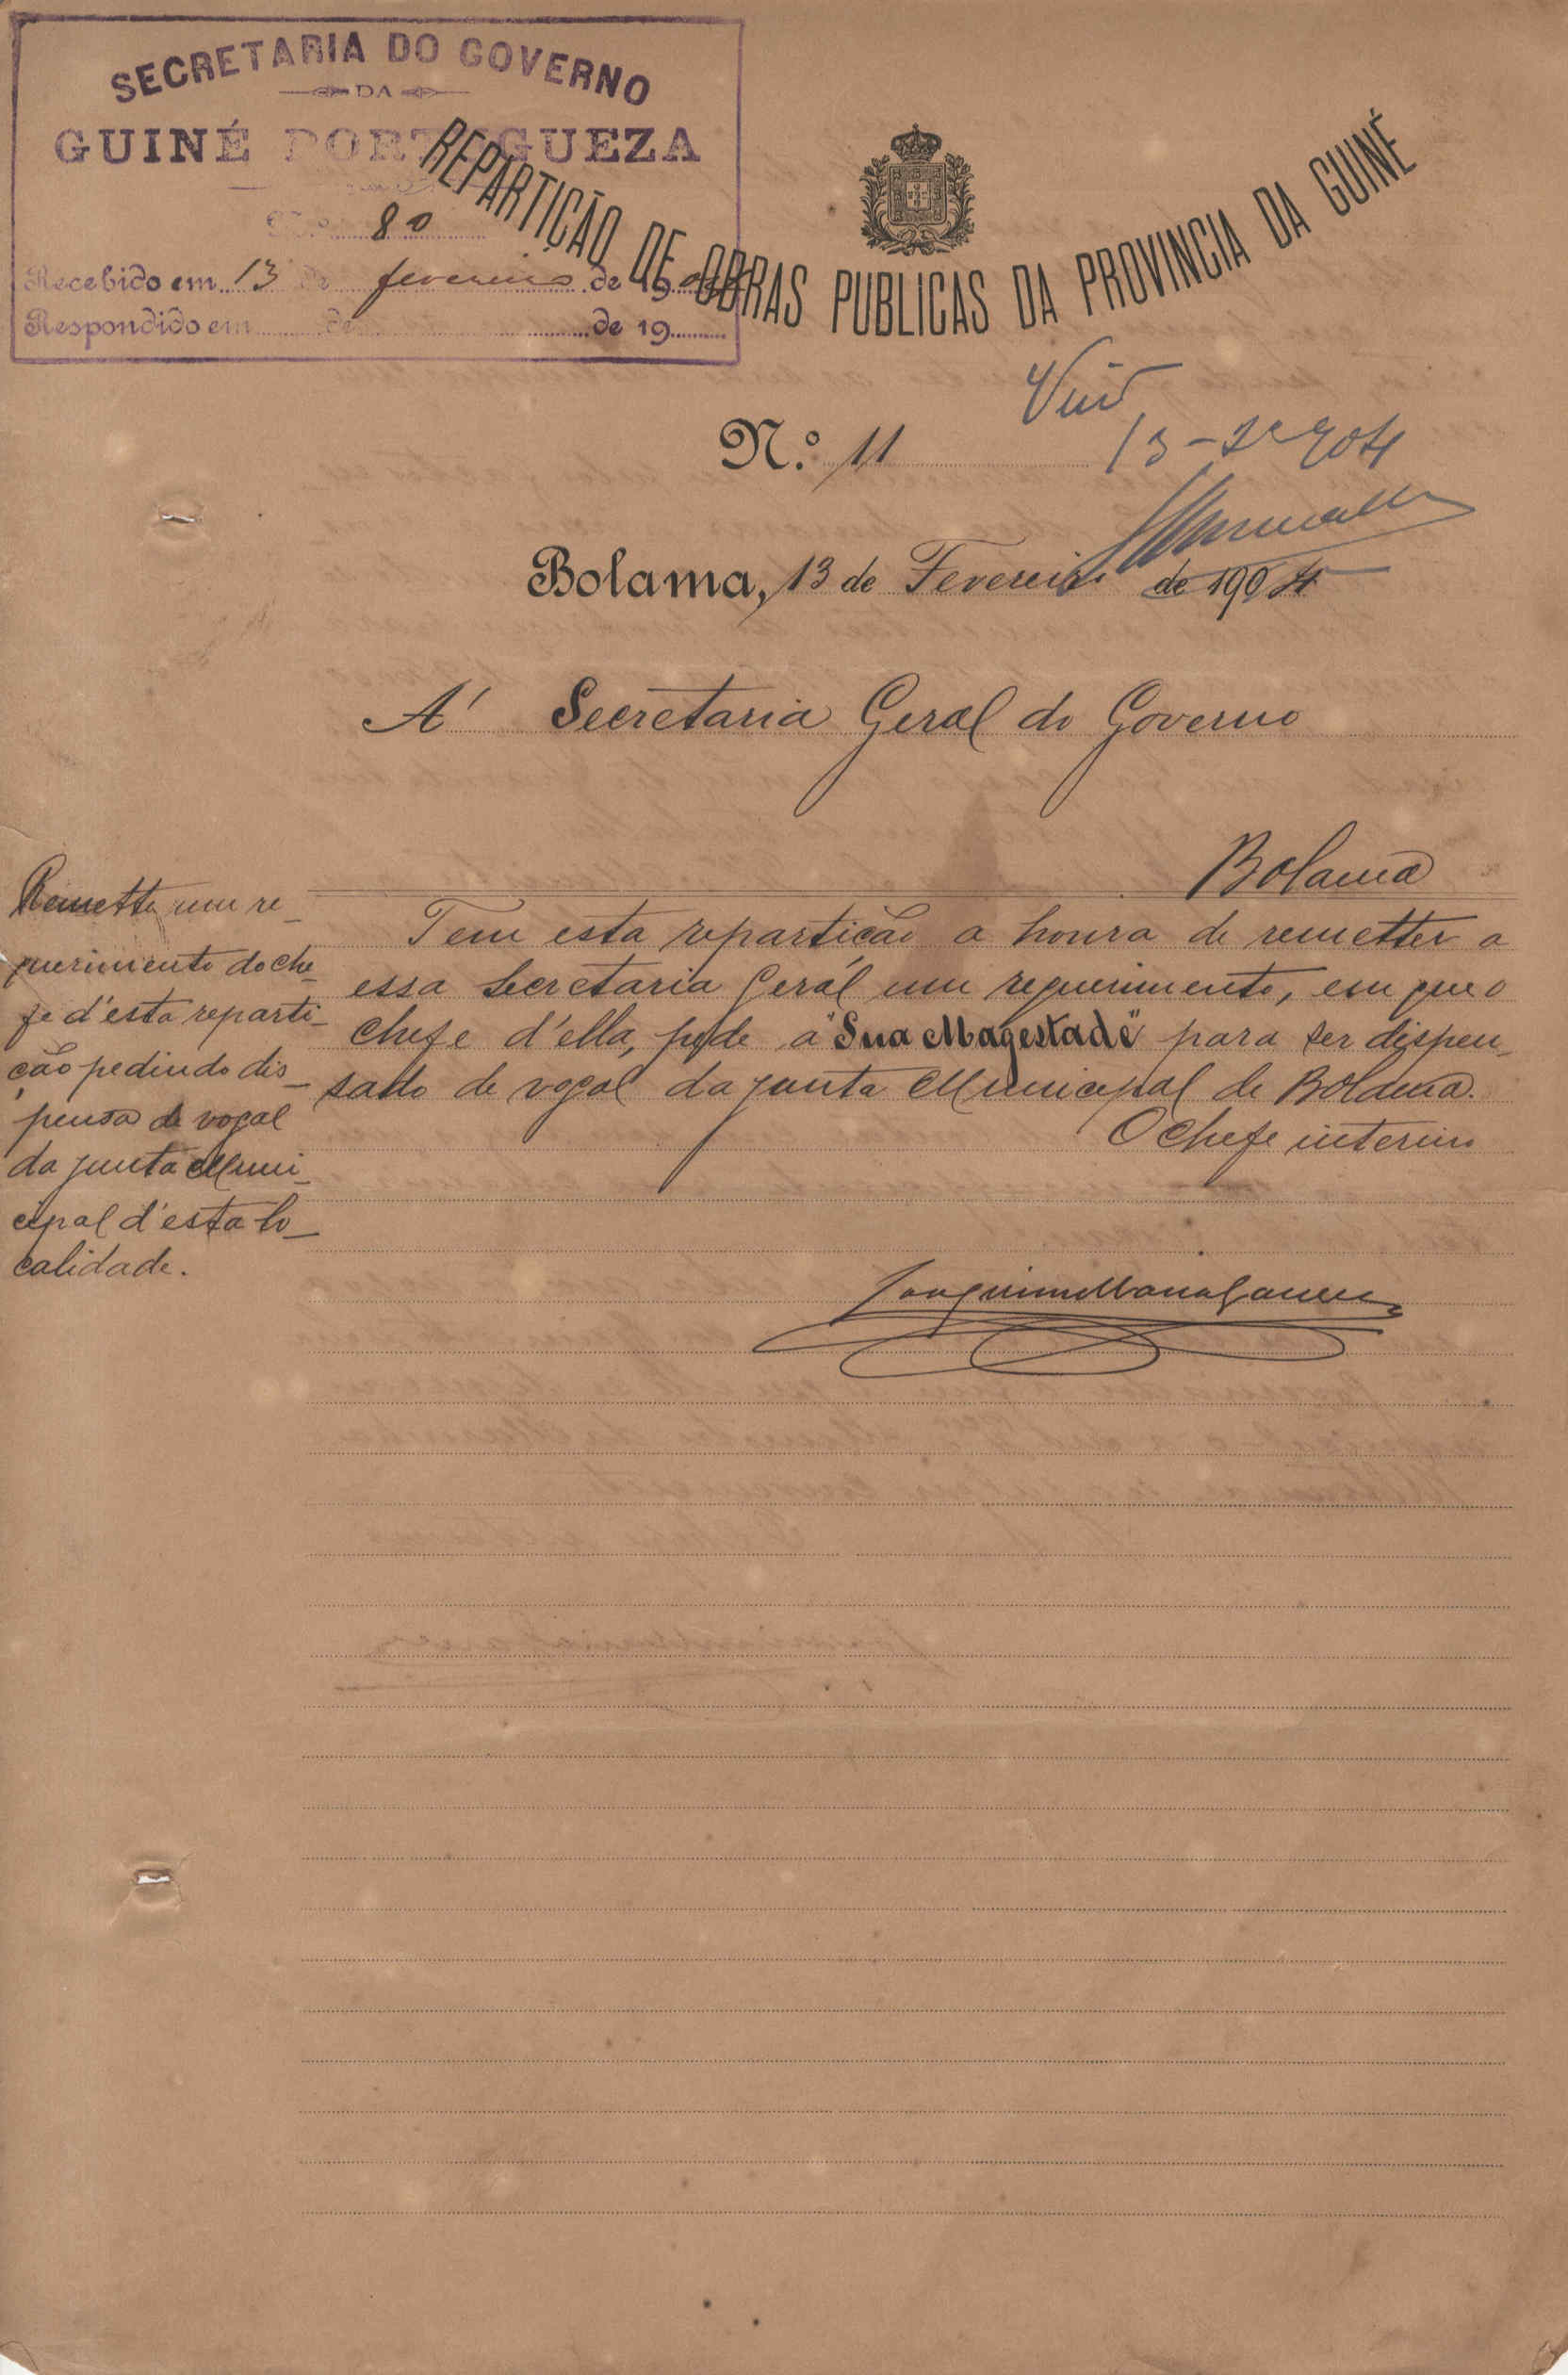 SECRETARIA DO GOVERNO
DA
GUINÉ PORTUGUEZA
N.º 80
Recebido em 13 de fevereiro de 1904
Respondido em de de 19
REPARTIÇÃO DE OBRAS PUBLICAS DA PROVINCIA DA GUINÉ
N.º 11
13-2º-904
Bolama, 13 de Fevereiro de 1904
A' Secretaria Geral do Governo
Bolama
Remette um re-
querimento do che-
fe d'esta reparti-
ção pedindo dis-
pensa de vogal
da junta Muni-
cipal d'esta lo-
calidade.
Tem esta repartição a honra de remetter a
essa Secretaria Geral um requerimento, em que o
chefe d'ella, pede a "Sua Magestade" para ser dispen-
sado de vogal da junta Municipal de Bolama.
O Chefe interino